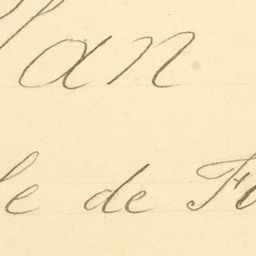 lan
le de Fo